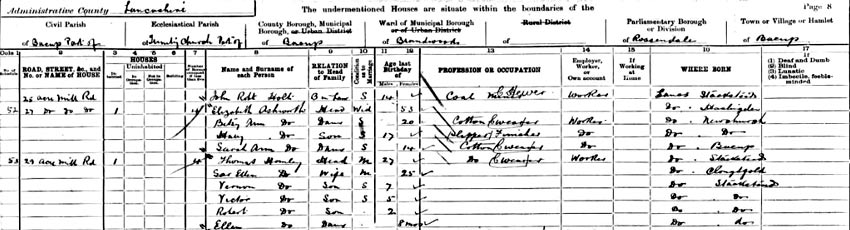 Administrative County Lancashire The undermentioned Houses are situate within the boundaries of the Page 8
Civil Parish Ecclesiastical Parish County Borough, Municipal Borough, or Urban District Ward of Municipal Borough or of Urban District Rural District Parliamentary Borough or Division Town or Village or Hamlet
of Bacup Part of of Trinity Church Part of of Bacup of of of Rossendale of Bacup
1 2 3 4 5 6 7 8 9 10 11 12 13 14 15 16 17
ROAD, STREET, &c., and No. or NAME of HOUSE HOUSES Uninhabited Name and Surname of each Person RELATION to Head of Family Condition as to Marriage Age last Birthday of Males Females PROFESSION OR OCCUPATION Employer, Worker, or Own account If Working at Home WHERE BORN (1) Deaf and Dumb (2) Blind (3) Lunatic (4) Imbecile, feeble-minded
25 acre mill Rd John Robt Holt S 14 Coal Worker Lancs Stacksteads
52 27 Do Do Do 1 4 Elizabeth Ashworth Head Wid 53 Do
Betsy Ann Do Daur S 20 Cotton Weaver Worker Do Newchurch
Do Son S 17 Do Do Do
Sarah Ann Do Daur S 14 Cotton Weaver Do Do Bacup
53 29 acre mill Rd 1 Thomas Head M 27 Do Weaver Worker Do Stacksteads
Ellen Do Wife M 25 Do Cloughfold
Vernon Do Son S 7 Do Stacksteads
Victor Do Son S 5 Do Do
Robert Do Son 2 Do Do
Ellen Do Daur 8 mos Do do